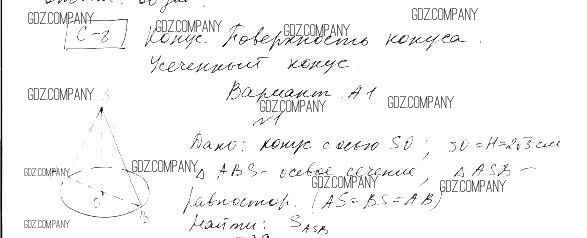 GDZ.COMPANY GDZ.COMPANY GDZ.COMPANY GDZ.COMPANY
С-8 Конус. Поверхность конуса.
Усеченный конус
GDZ.COMPANY Вариант А1
GDZ.COMPANY GDZ.COMPANY
S №1
Дано: конус с осью SO; SO=H=2√3 см
GDZ.COMPANY GDZ.COMPANY △ABS - осевое сечение, △ASB -
GDZ.COMPANY GDZ.COMPANY
равностор. (AS=BS=AB)
O B
GDZ.COMPANY Найти: S_ASB